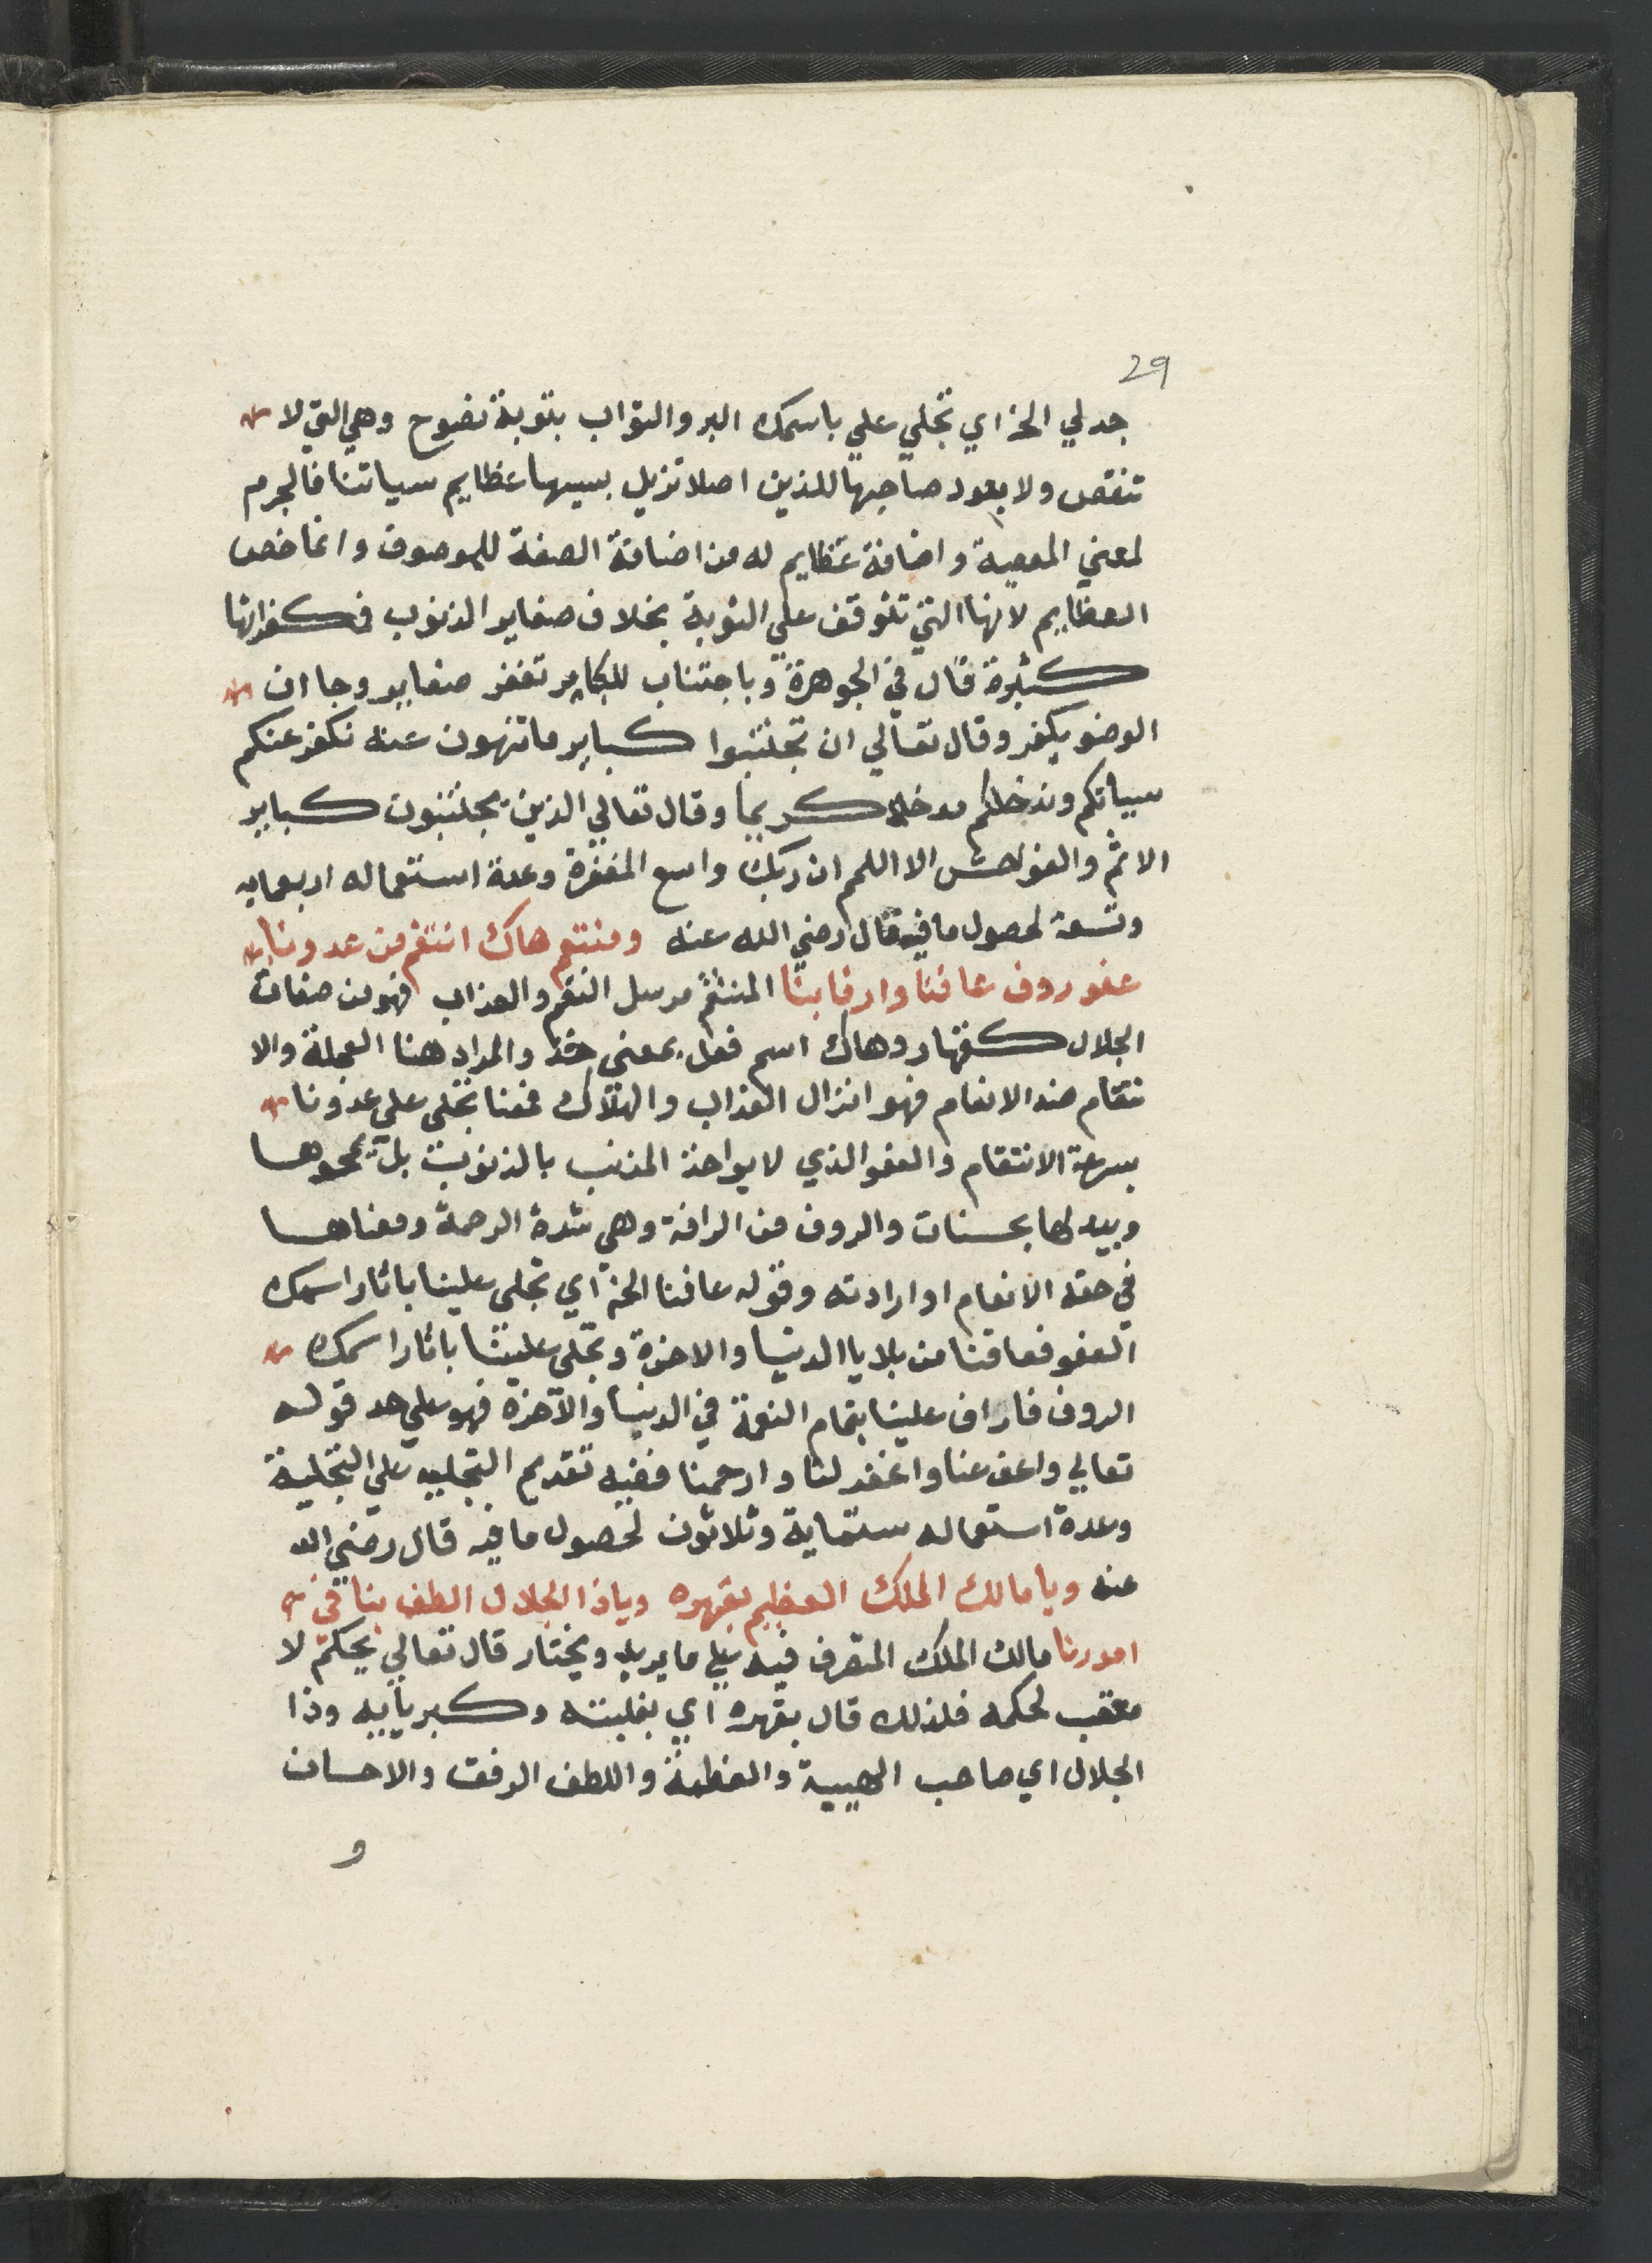 29
جد لي الخ اي تجلي علي باسمك البر والتواب بتوبة نصوح وهي التي لا
تنقص ولا يعود صاحبها للذنب اصلا تزيل بسببها عظايم سياتنا فالجرم
لمعني المعصية واضافة عظايم له من اضافة الصفة للموصوف وانما خص
العظايم لانها التي تتوقف علي التوبة بخلاف صغاير الذنوب فكفراتها
كثيرة قال في الجوهرة وباجتناب للكباير تغفر صغاير وجا ان
الوضو يكفر وقال تعالي ان تجتنبوا كباير ما تنهون عنه نكفر عنكم
سياتكم وندخلكم مدخلا كريما وقال تعالي الذين يجتنبون كباير
الاثم والفواحش الا اللمم ان ربك واسع المغفرة وعدة استعماله اربعمايه
وتسعة لحصول ما فيه قال رضي الله عنه ومنتقم هاك انتقم من عدونا
عفو روف عافنا وارفا بنا المنتقم مرسل النقم والعذاب فهو من صفات
الجلال كقهار وهاك اسم فعل بمعني خذ والمراد هنا العجلة والا
نتقام ضد الانعام فهو انزال العذاب والهلاك فمعنا تجلى على عدونا
بسرعة الانتقام والعفو الذي لا يواخذ المذنب بالذنوب بل يمحوها
ويبدلها بحسنات والروف من الرافة وهي شدة الرحمة ومعناها
في حقه الانعام او ارادته وقوله عافنا الخ اي تجلى علينا باثار اسمك
العفو فعافنا من بلايا الدنيا والاخرة وتجلى علينا باثار اسمك
الروف فاراف علينا بتمام النعمة في الدنيا والآخرة فهو علي حد قوله
تعالي واعف عنا واغفر لنا وارحمنا ففيه تقديم التخليه علي التحلية
وعدة استعماله ستماية وثلاثون لحصول ما فيه قال رضي الله
عنه ويا مالك الملك العظيم بقهره ويا ذا الجلال الطف بنا في
امورنا مالك الملك المتصرف فيه علي ما يريد ويختار قال تعالي يحكم لا
معقب لحكمه فلذلك قال بقهره اي بغلبته وكبريايه وذا
الجلال اي صاحب الهيبة والعظمة واللطف الرفق والاحسان
و